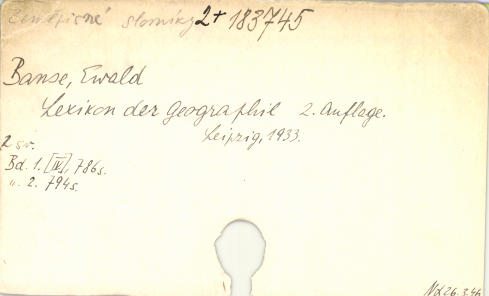 Zeměpisné slovníky 2+ 183745
Banse, Ewald
Lexikon der Geographie 2. Auflage.
Leipzig, 1933.
2 sv.
Bd. 1. [IV], 786s.
„ 2. 794s.